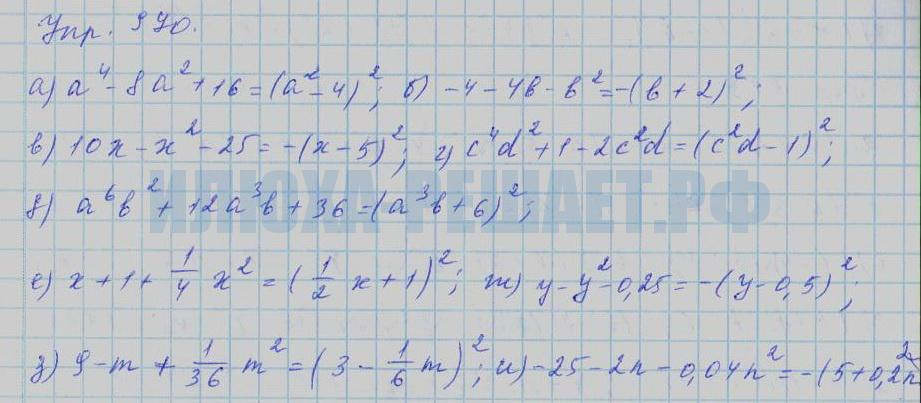 Упр. 970.
а) a⁴ - 8a² + 16 = (a² - 4)²; б) -4 - 4b - b² = -(b + 2)²;
в) 10x - x² - 25 = -(x - 5)²; г) c⁴d² + 1 - 2c²d = (c²d - 1)²;
ИЛЮХА-РЕШАЕТ.РФ
д) a⁶b² + 12a³b + 36 = (a³b + 6)²;
е) x + 1 + 1/4 x² = (1/2 x + 1)²; ж) y - y² - 0,25 = -(y - 0,5)²;
з) 9 - m + 1/36 m² = (3 - 1/6 m)²; и) -25 - 2n - 0,04n² = -(5 + 0,2n)²